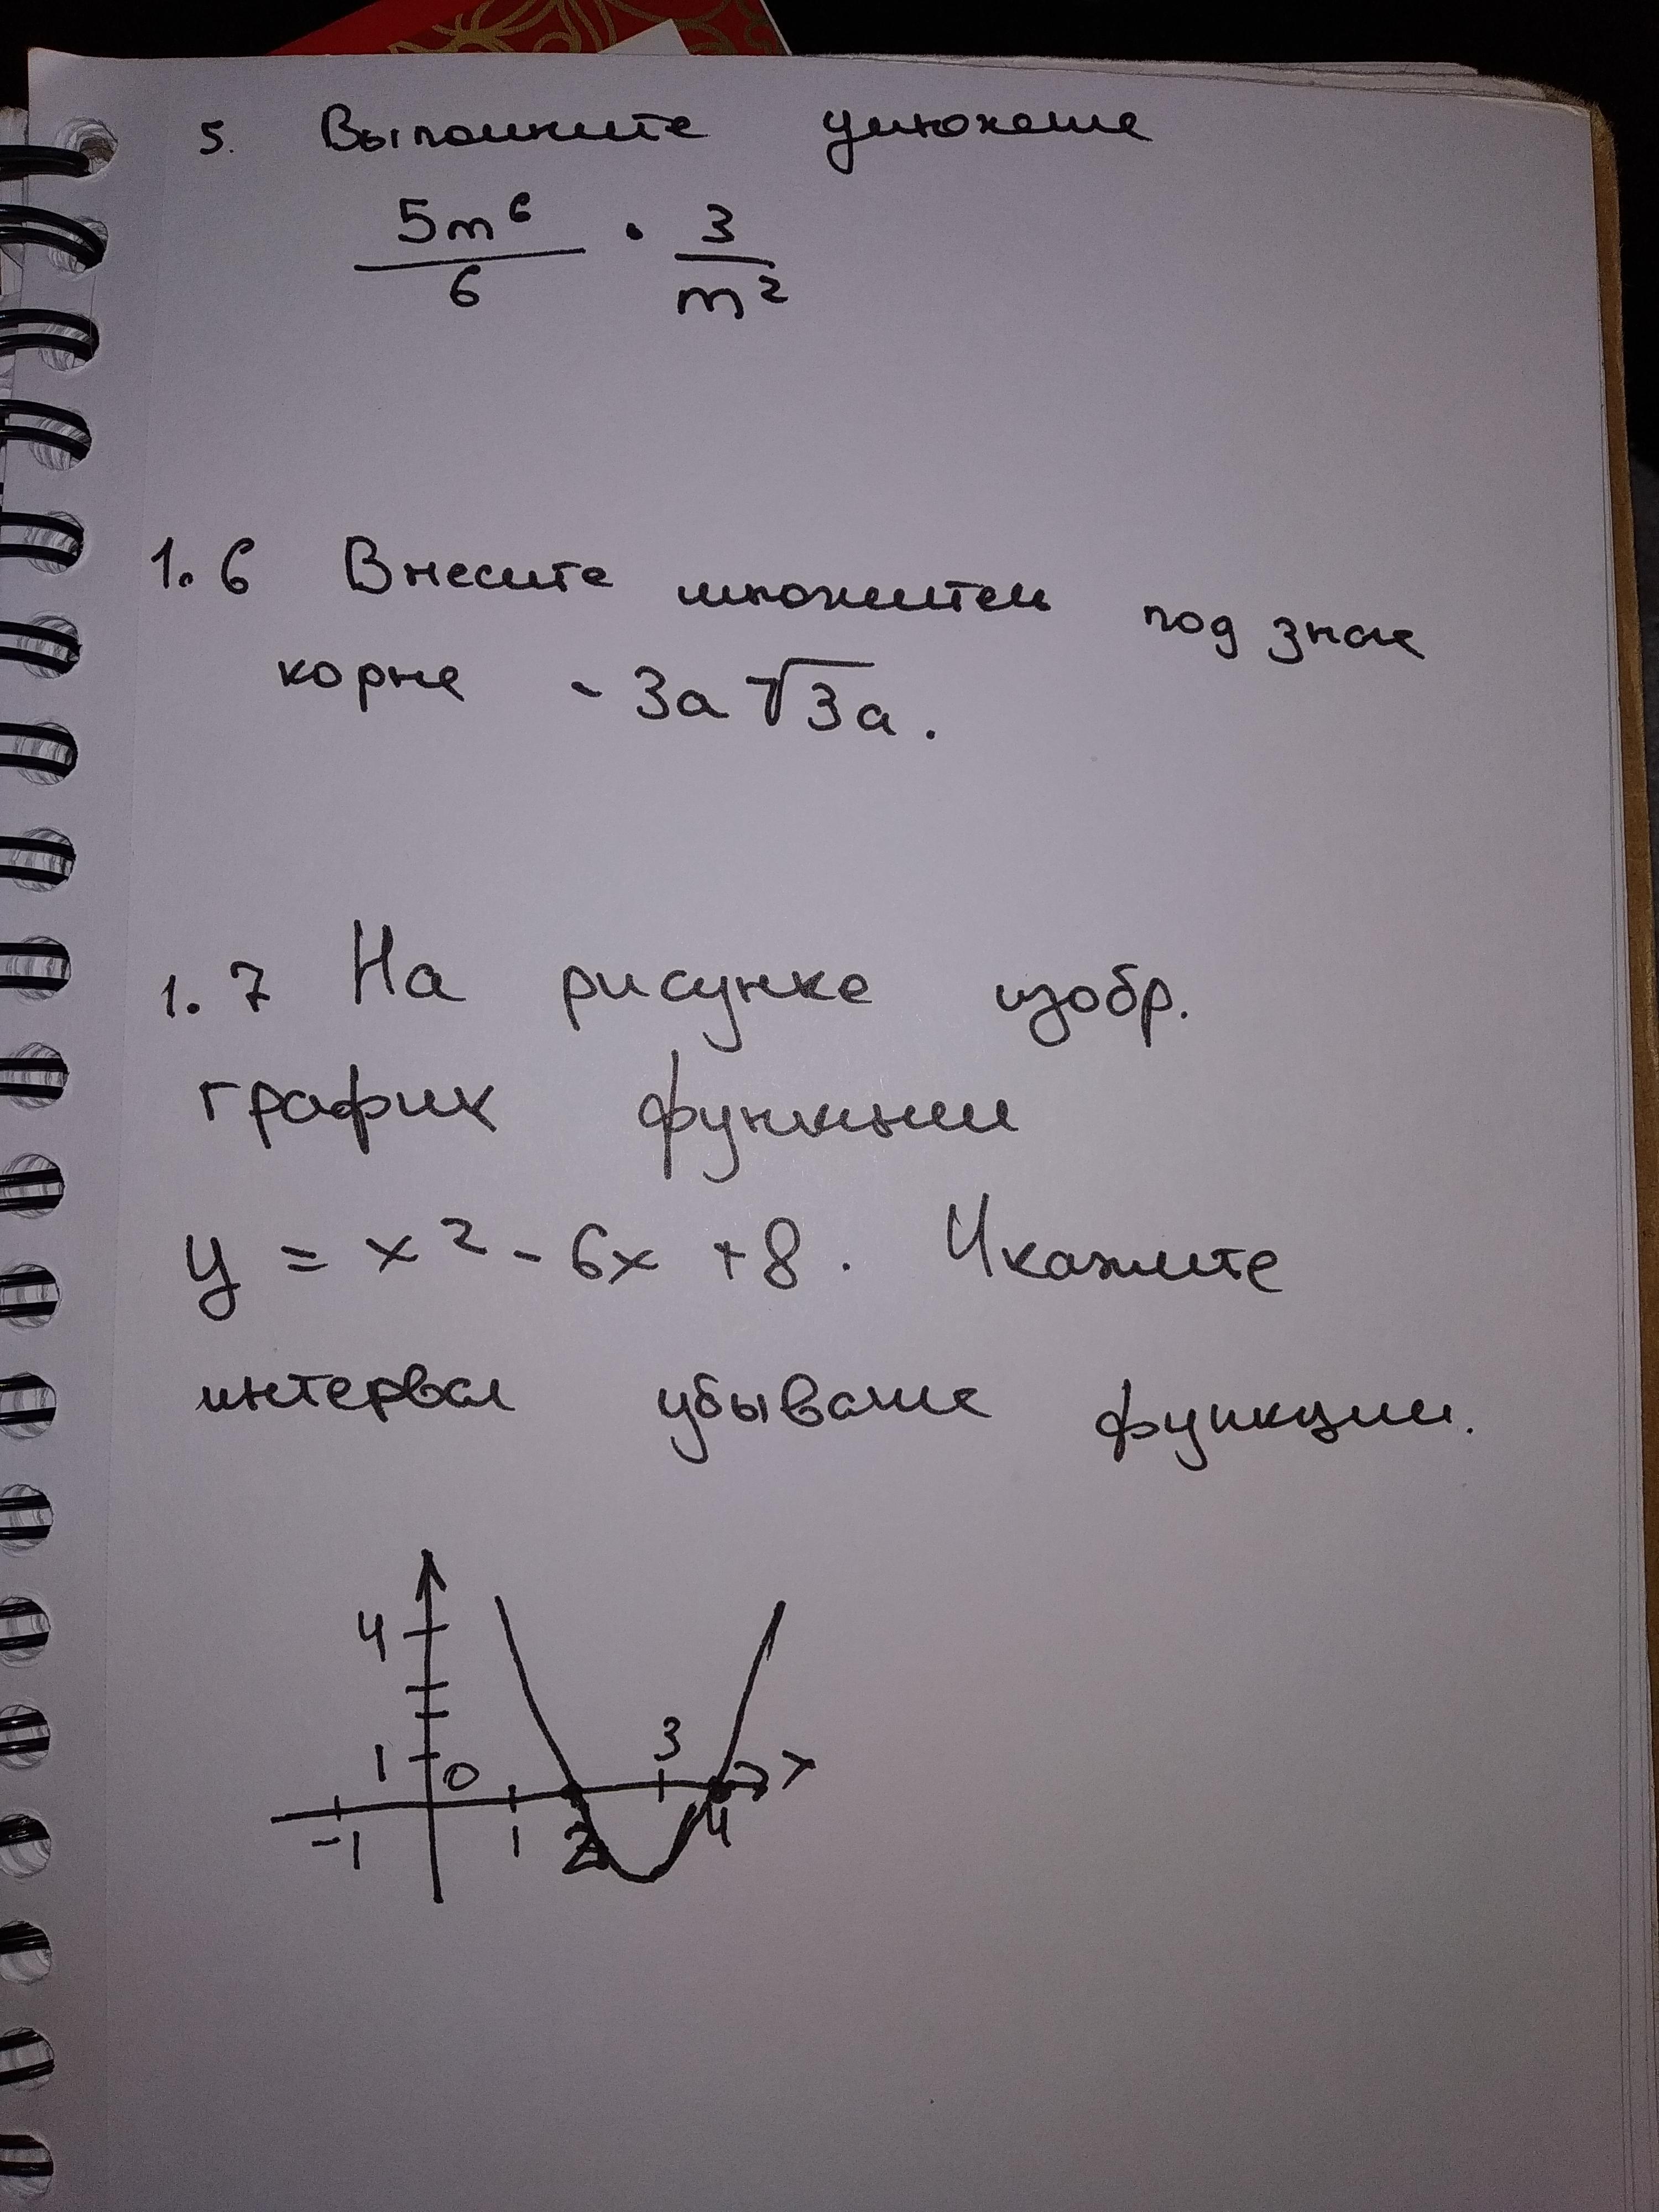 5. Выполните умножение
5m⁶ / 6 · 3 / m²
1.6 Внесите множитель под знак
корня - 3a √3a.
1.7 На рисунке изобр.
график функции
y = x² - 6x + 8. Укажите
интервал убывания функции.
4
3
1 0 x
-1 1 2 4